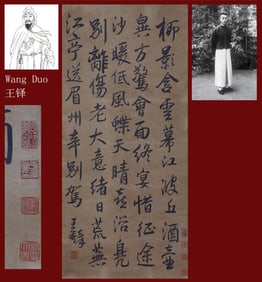 Wang Duo
王铎
柳影含雲幕江波近酒壺
異方驚會面終宴惜征途
沙暖低風蝶天晴喜浴鳧
別離傷老大意緒日荒蕪
江亭送眉州辛別駕
王鐸